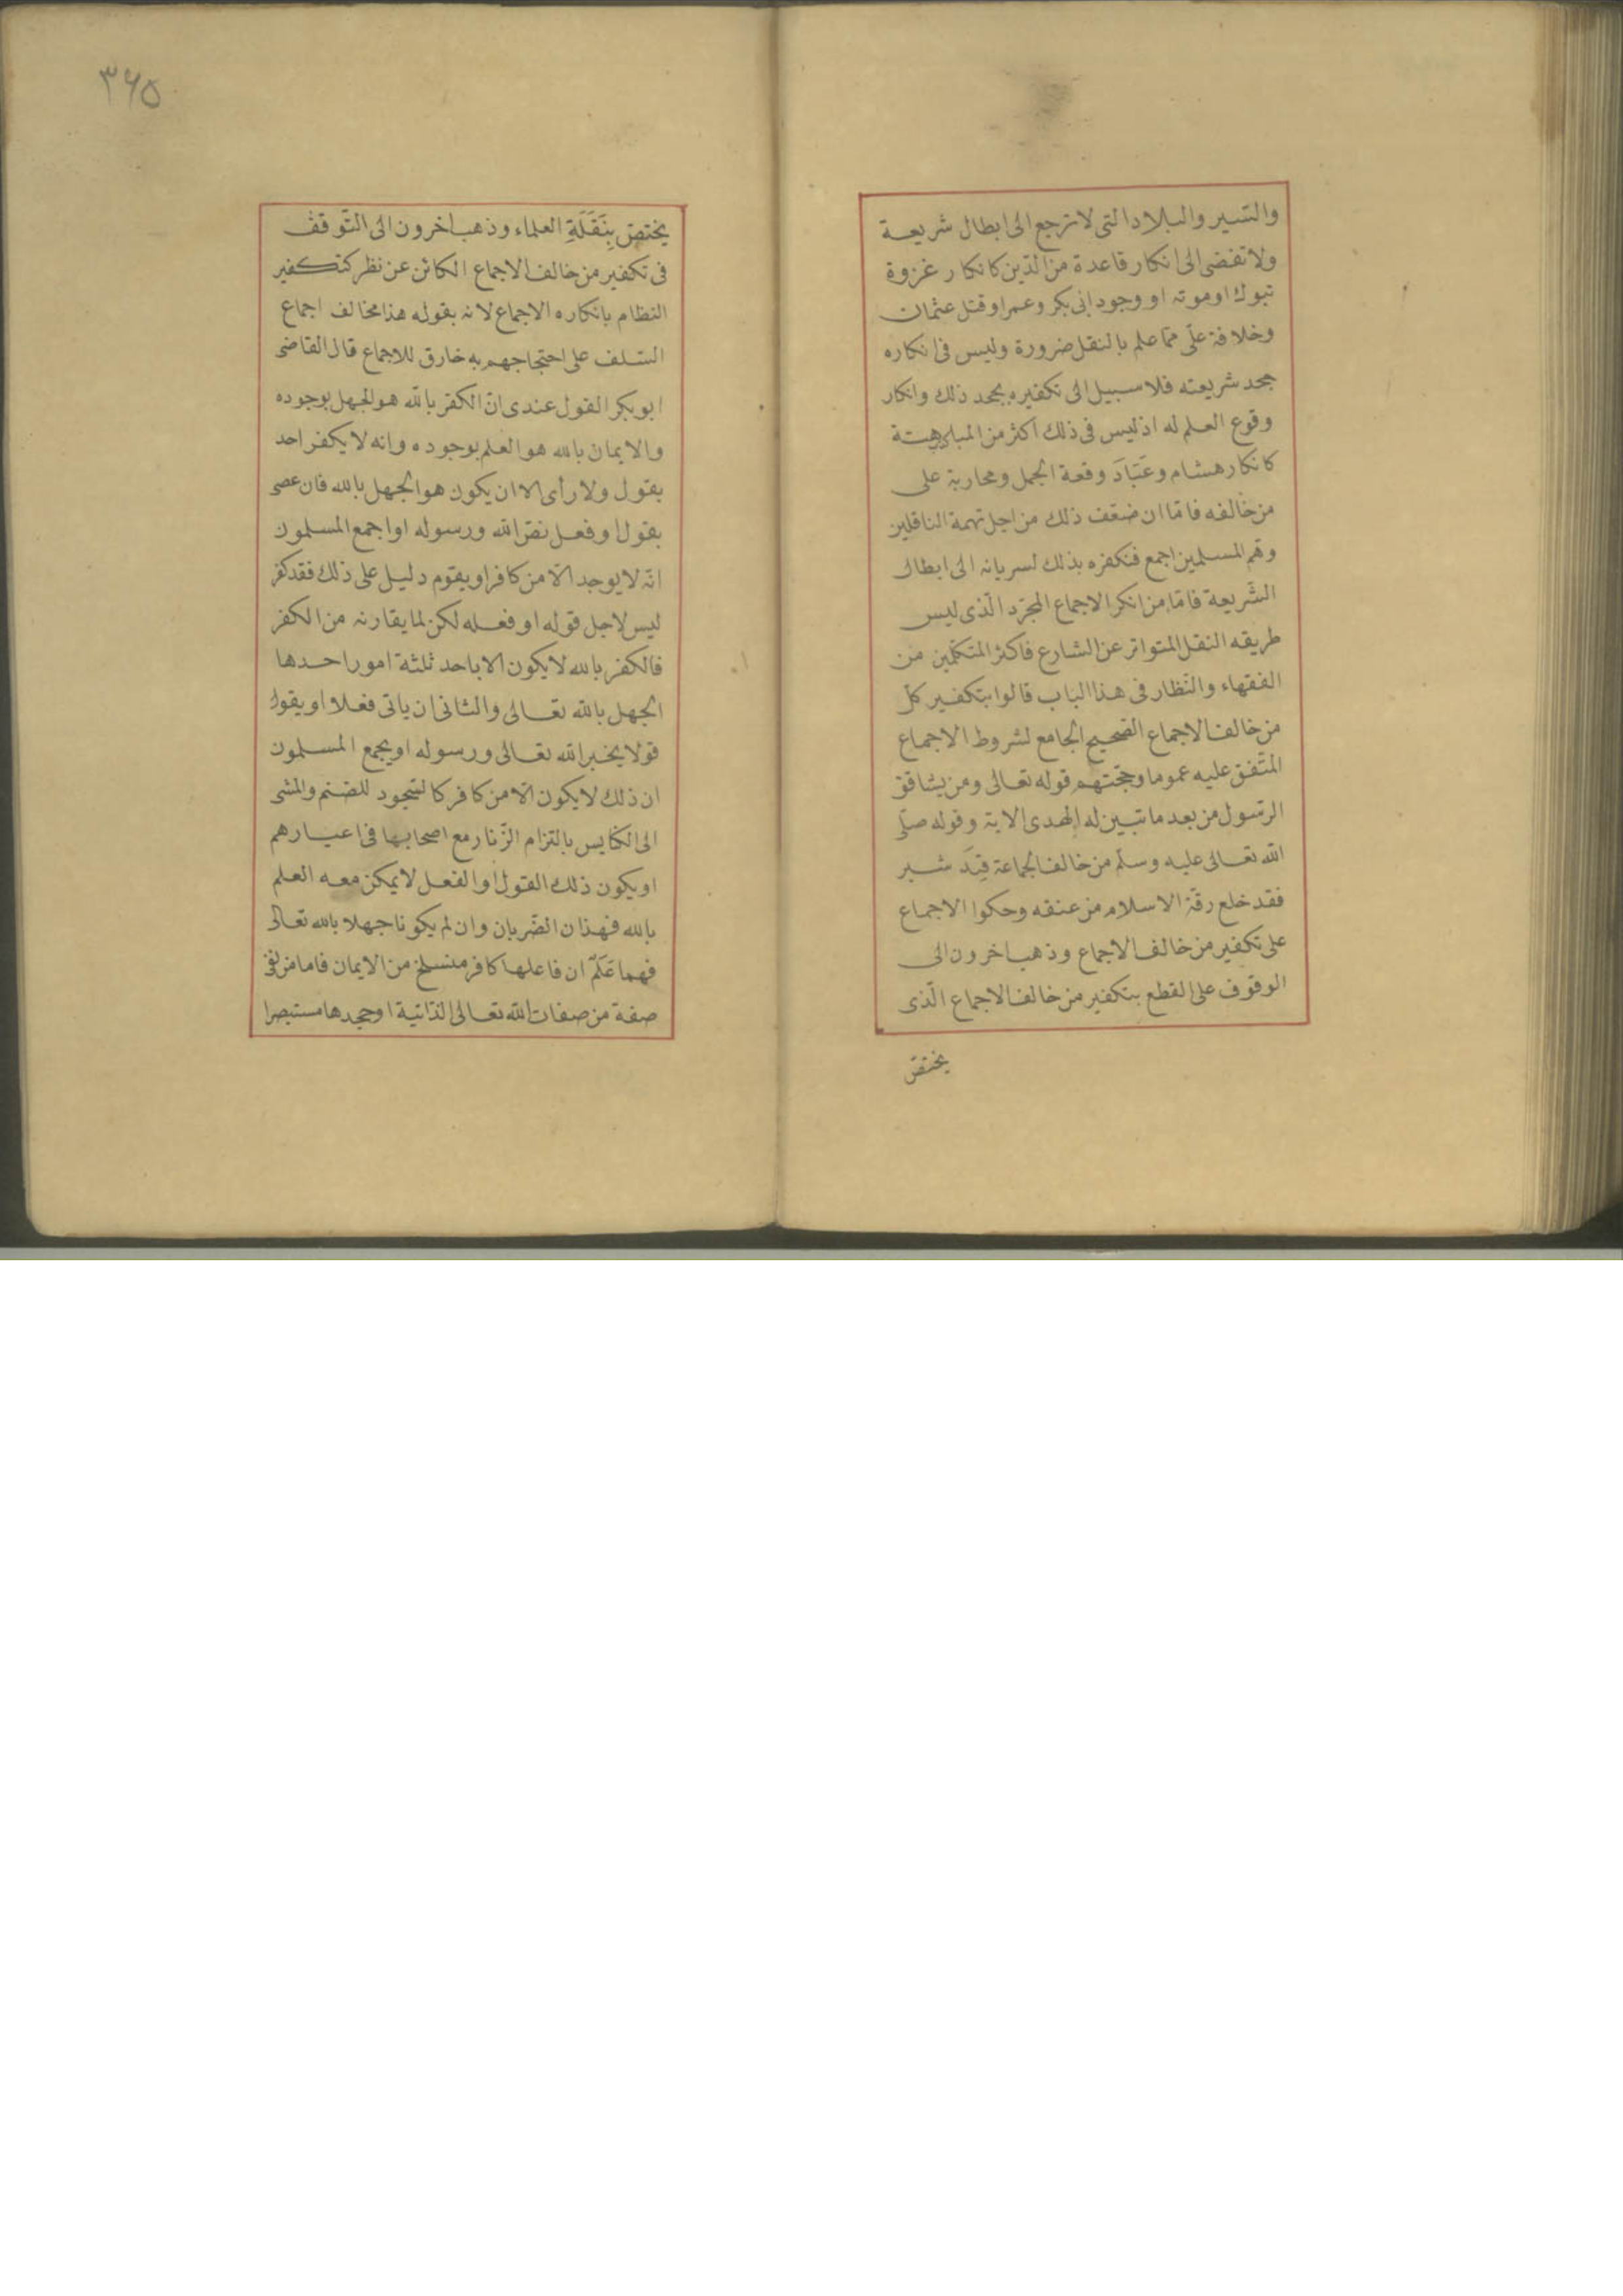 والسير والبلاد التي لا ترجع الى ابطال شريعة
ولا تفضى الى انكار قاعدة من الدّين كانكار غزوة
تبوك او موته او وجود ابى بكر وعمر او قتل عثمان
وخلافة علىّ ممّا علم بالنقل ضرورة وليس فى انكاره
جحد شريعته فلا سبيل الى تكفيره بجحد ذلك وانكار
وقوع العلم له اذ ليس فى ذلك اكثر من المباهتة
كانكار هشام وعَبّادَ وقعة الجمل ومحاربة على
من خالفه فامّا ان ضعّف ذلك من اجل تهمة الناقلين
وهّم المسلمين اجمع فنكفره بذلك لسريانه الى ابطال
الشّريعة فامّا من انكر الاجماع المجرّد الّذى ليس
طريقه النقل المتواتر عن الشارع فاكثر المتكلّمين من
الفقهاء والنّظار فى هذا الباب قالوا بتكفير كلّ
من خالف الاجماع الصّحيح الجامع لشروط الاجماع
المتّفق عليه عموما وحجّتهم قوله تعالى ومن يشاقق
الرّسول من بعد ما تبين له الهدى الاية وقوله صلّى
الله تعالى عليه وسلّم من خالف الجماعة قيدَ شبر
فقد خلع رقة الاسلام من عنقه وحكوا الاجماع
على تكفير من خالف الاجماع وذهب اخرون الى
الوقوف على القطع بتكفير من خالف الاجماع الّذى
يختصّ
٣٦٥
يختصّ بِنَقَلَةِ العلماء وذهب اخرون الى التّوقف
فى تكفير من خالف الاجماع الكائن عن نظر كتكفير
النظام بانكاره الاجماع لانه بقوله هذا مخالف اجماع
السّلف على احتجاجهم به خارق للاجماع قال القاضى
ابو بكر القول عندى انّ الكفر بالله هو الجهل بوجوده
والايمان بالله هو العلم بوجوده وانه لا يكفر احد
بقول ولا رأى الا ان يكون هو الجهل بالله فان عصى
بقول او فعل نصّ الله ورسوله او اجمع المسلمون
انّه لا يوجد الّا من كافر او يقوم دليل على ذلك فقد كفر
ليس لاجل قوله او فعله لكن لما يقارنه من الكفر
فالكفر بالله لا يكون الا باحد ثلثة امور احدها
الجهل بالله تعالى والثانى ان ياتى فعلا او يقول
قولا يخبر الله تعالى ورسوله او يجمع المسلمون
ان ذلك لا يكون الّا من كافر كالسّجود للصّنم والمشى
الى الكنايس بالتزام الزّنار مع اصحابها فى اعيادهم
او يكون ذلك القول او الفعل لا يمكن معه العلم
بالله فهذان الضّربان وان لم يكونا جهلا بالله تعالى
فهما عَلَمٌ ان فاعلها كافر منسلخ من الايمان فاما من نفى
صفة من صفات الله تعالى الذّاتية او جحدها مستبصرا